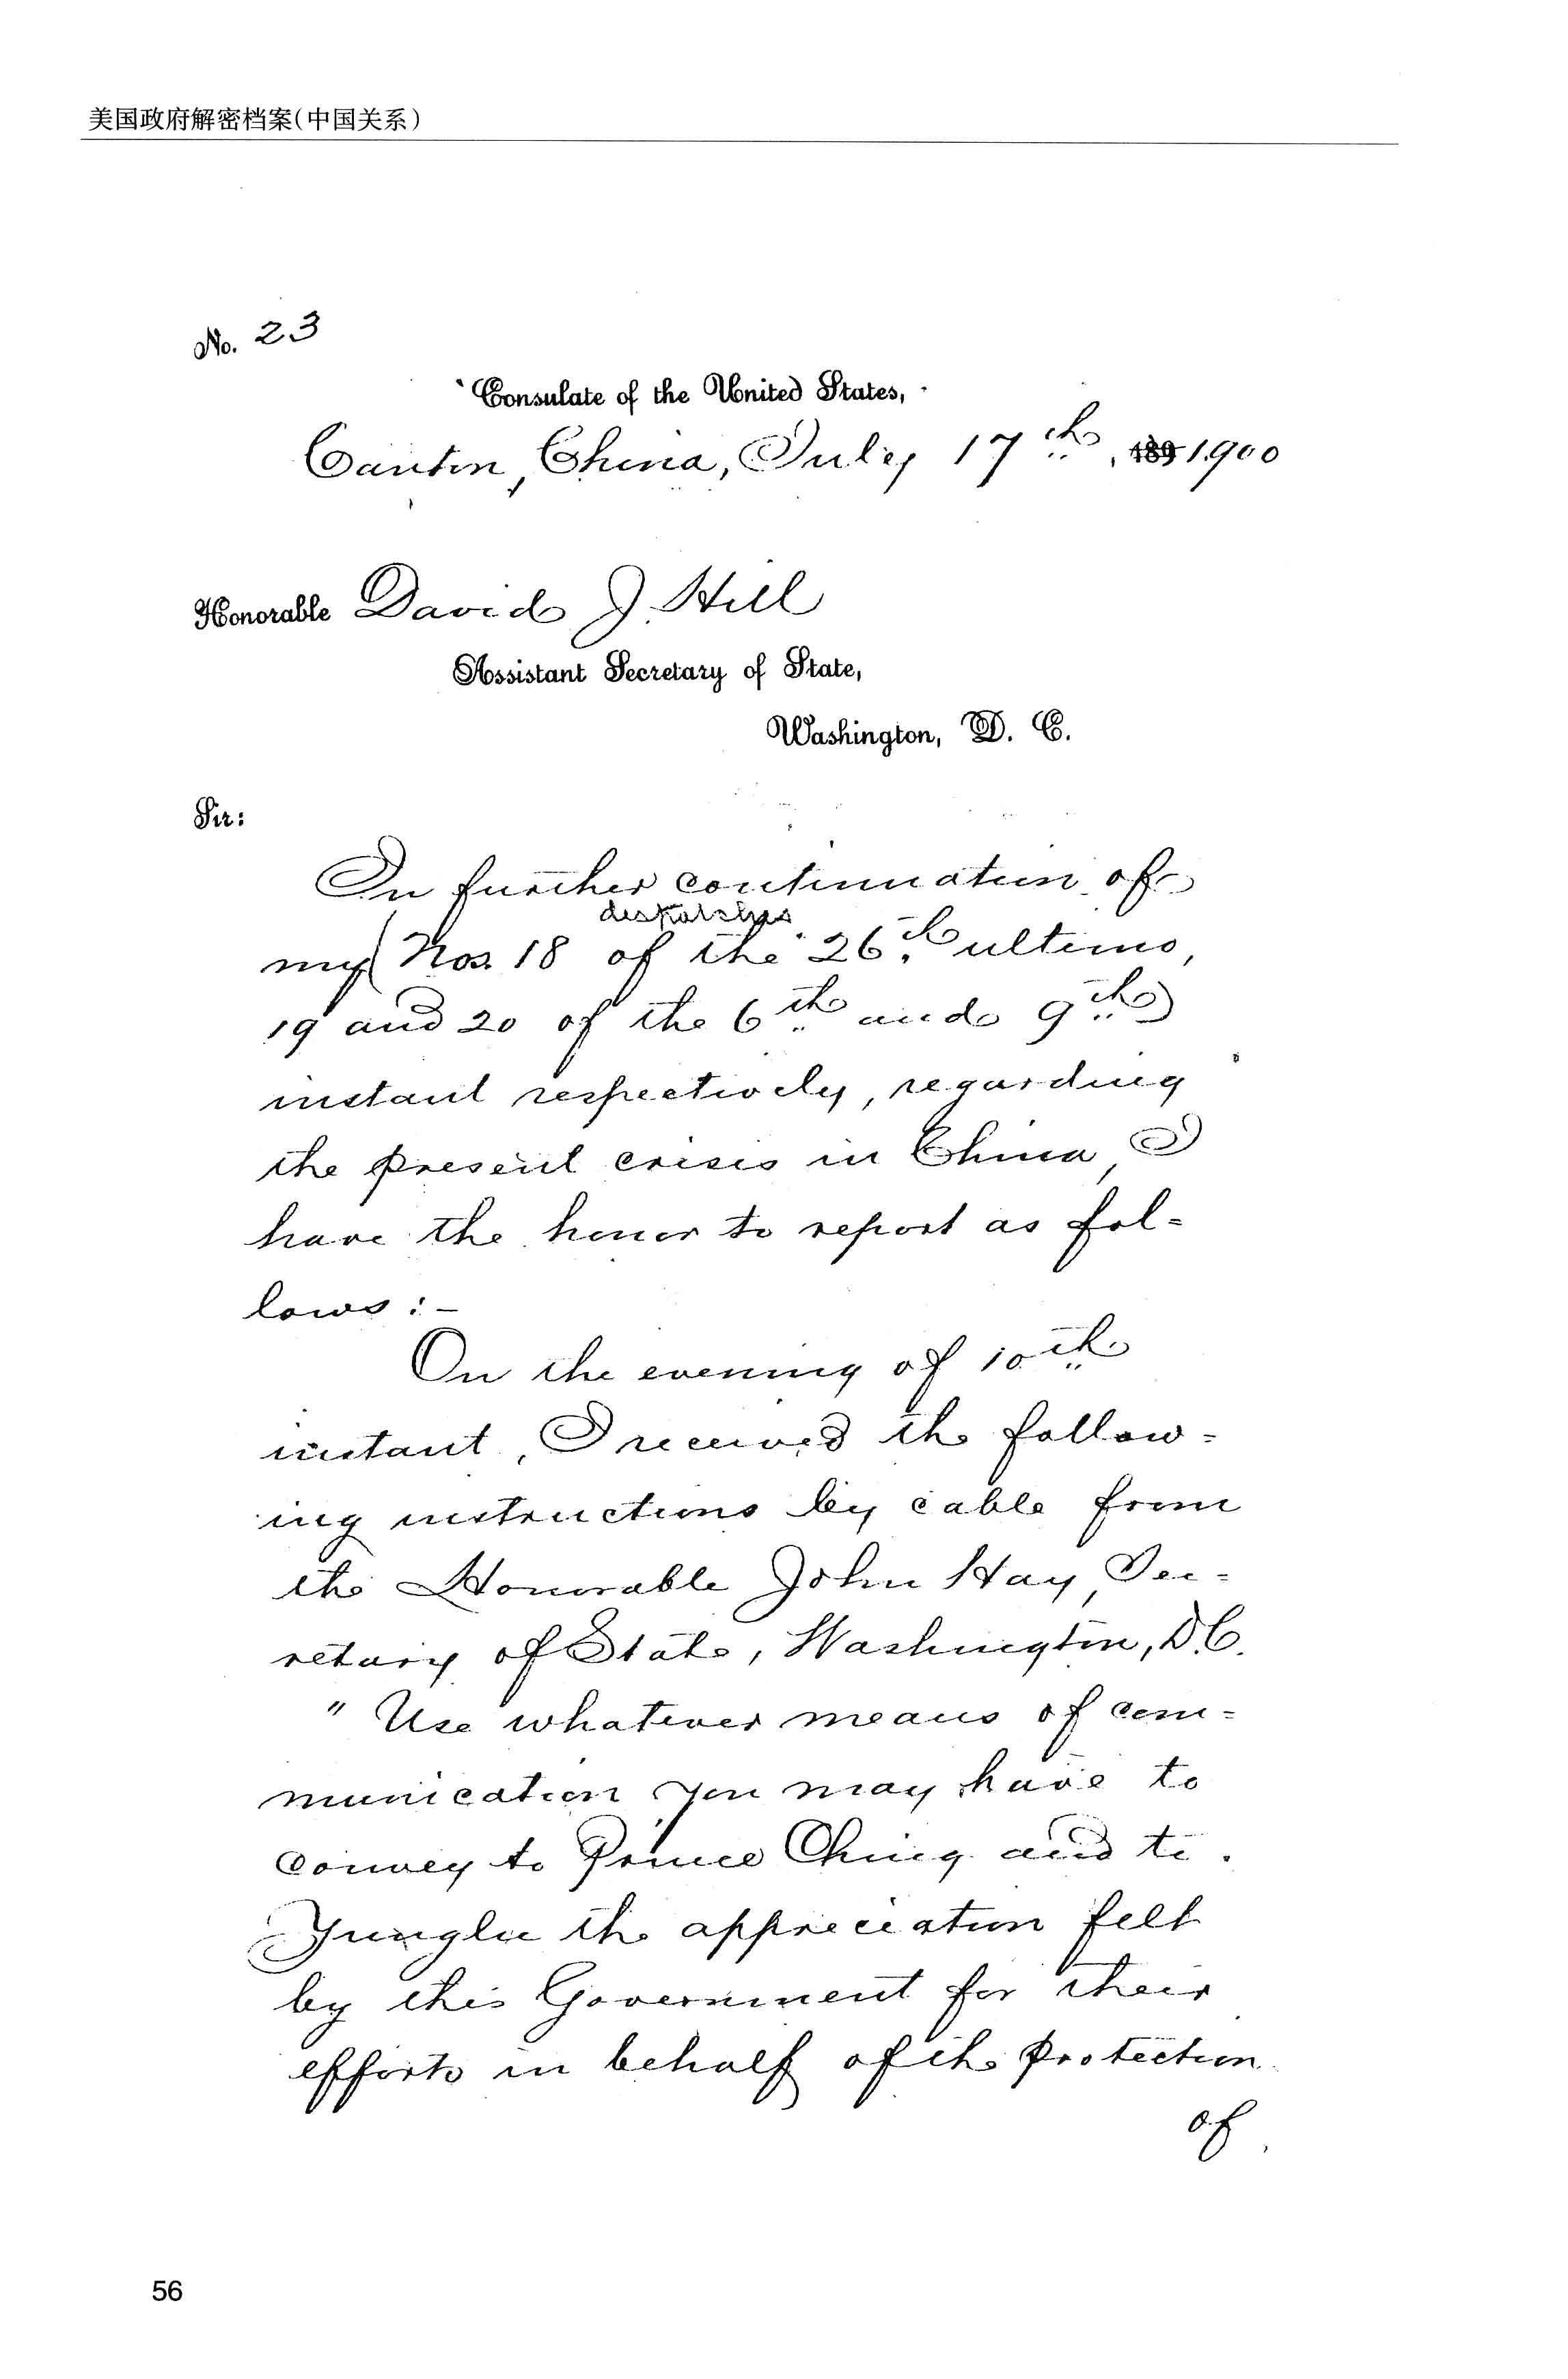 美国政府解密档案(中国关系)
No. 23
Consulate of the United States,
Canton, China, July 17th, 189 1900
Honorable David J. Hill
Assistant Secretary of State,
Washington, D. C.
Sir:
In further continuation of
despatches
my (Nos. 18 of the 26th ultimo,
19 and 20 of the 6th and 9th)
instant respectively, regarding
the present crisis in China, I
have the honor to report as fol=
lows:-
On the evening of 10th
instant, I received the follow=
ing instructions by cable from
the Honorable John Hay, Sec=
retary of State, Washington, D.C.
" Use whatever means of com=
munication you may have to
convey to Prince Ching and to
Junglu the appreciation felt
by this Government for their
efforts in behalf of the protection
of
56